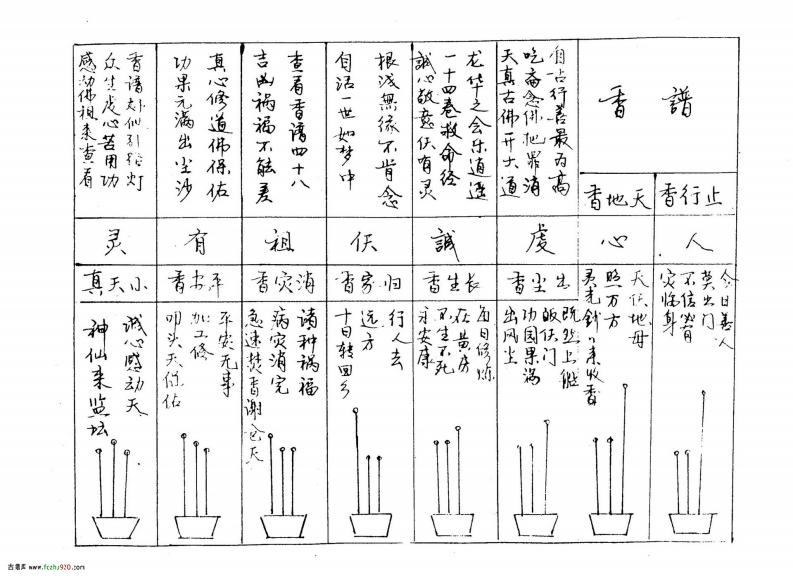 香譜
自占行善最为高
吃斋念佛把罪消
天真古佛开大道
龙华之会乐逍遥
一十四卷救命经
誠心敬意伏有灵
根浅無缘不肯念
自活一世如梦中
查看香谱四十八
吉凶祸福不能差
真心修道佛保佑
功果元满出尘沙
香谱好似引路灯
众生虔心苦用功
感动佛祖来查看
止行香
天地香
人心虔誠伏祖有灵
出尘香
长生香
归家香
消灾香
平安香
小天真
今日善人
莫出门
不信必有
灾临身
天伏地母
照万方
灵光钱刂来收香
既然上能
皈伏门
功圆果满
出风尘
每日修炼
在黄房
不生不死
永安康
行人去
远方
十日转回乡
诸种祸福
病灾消完
急速焚香谢仓天
平安无事
加工修
叩头天保佑
诚心感动天
神仙来监坛
古易库 www.fczhu920.com